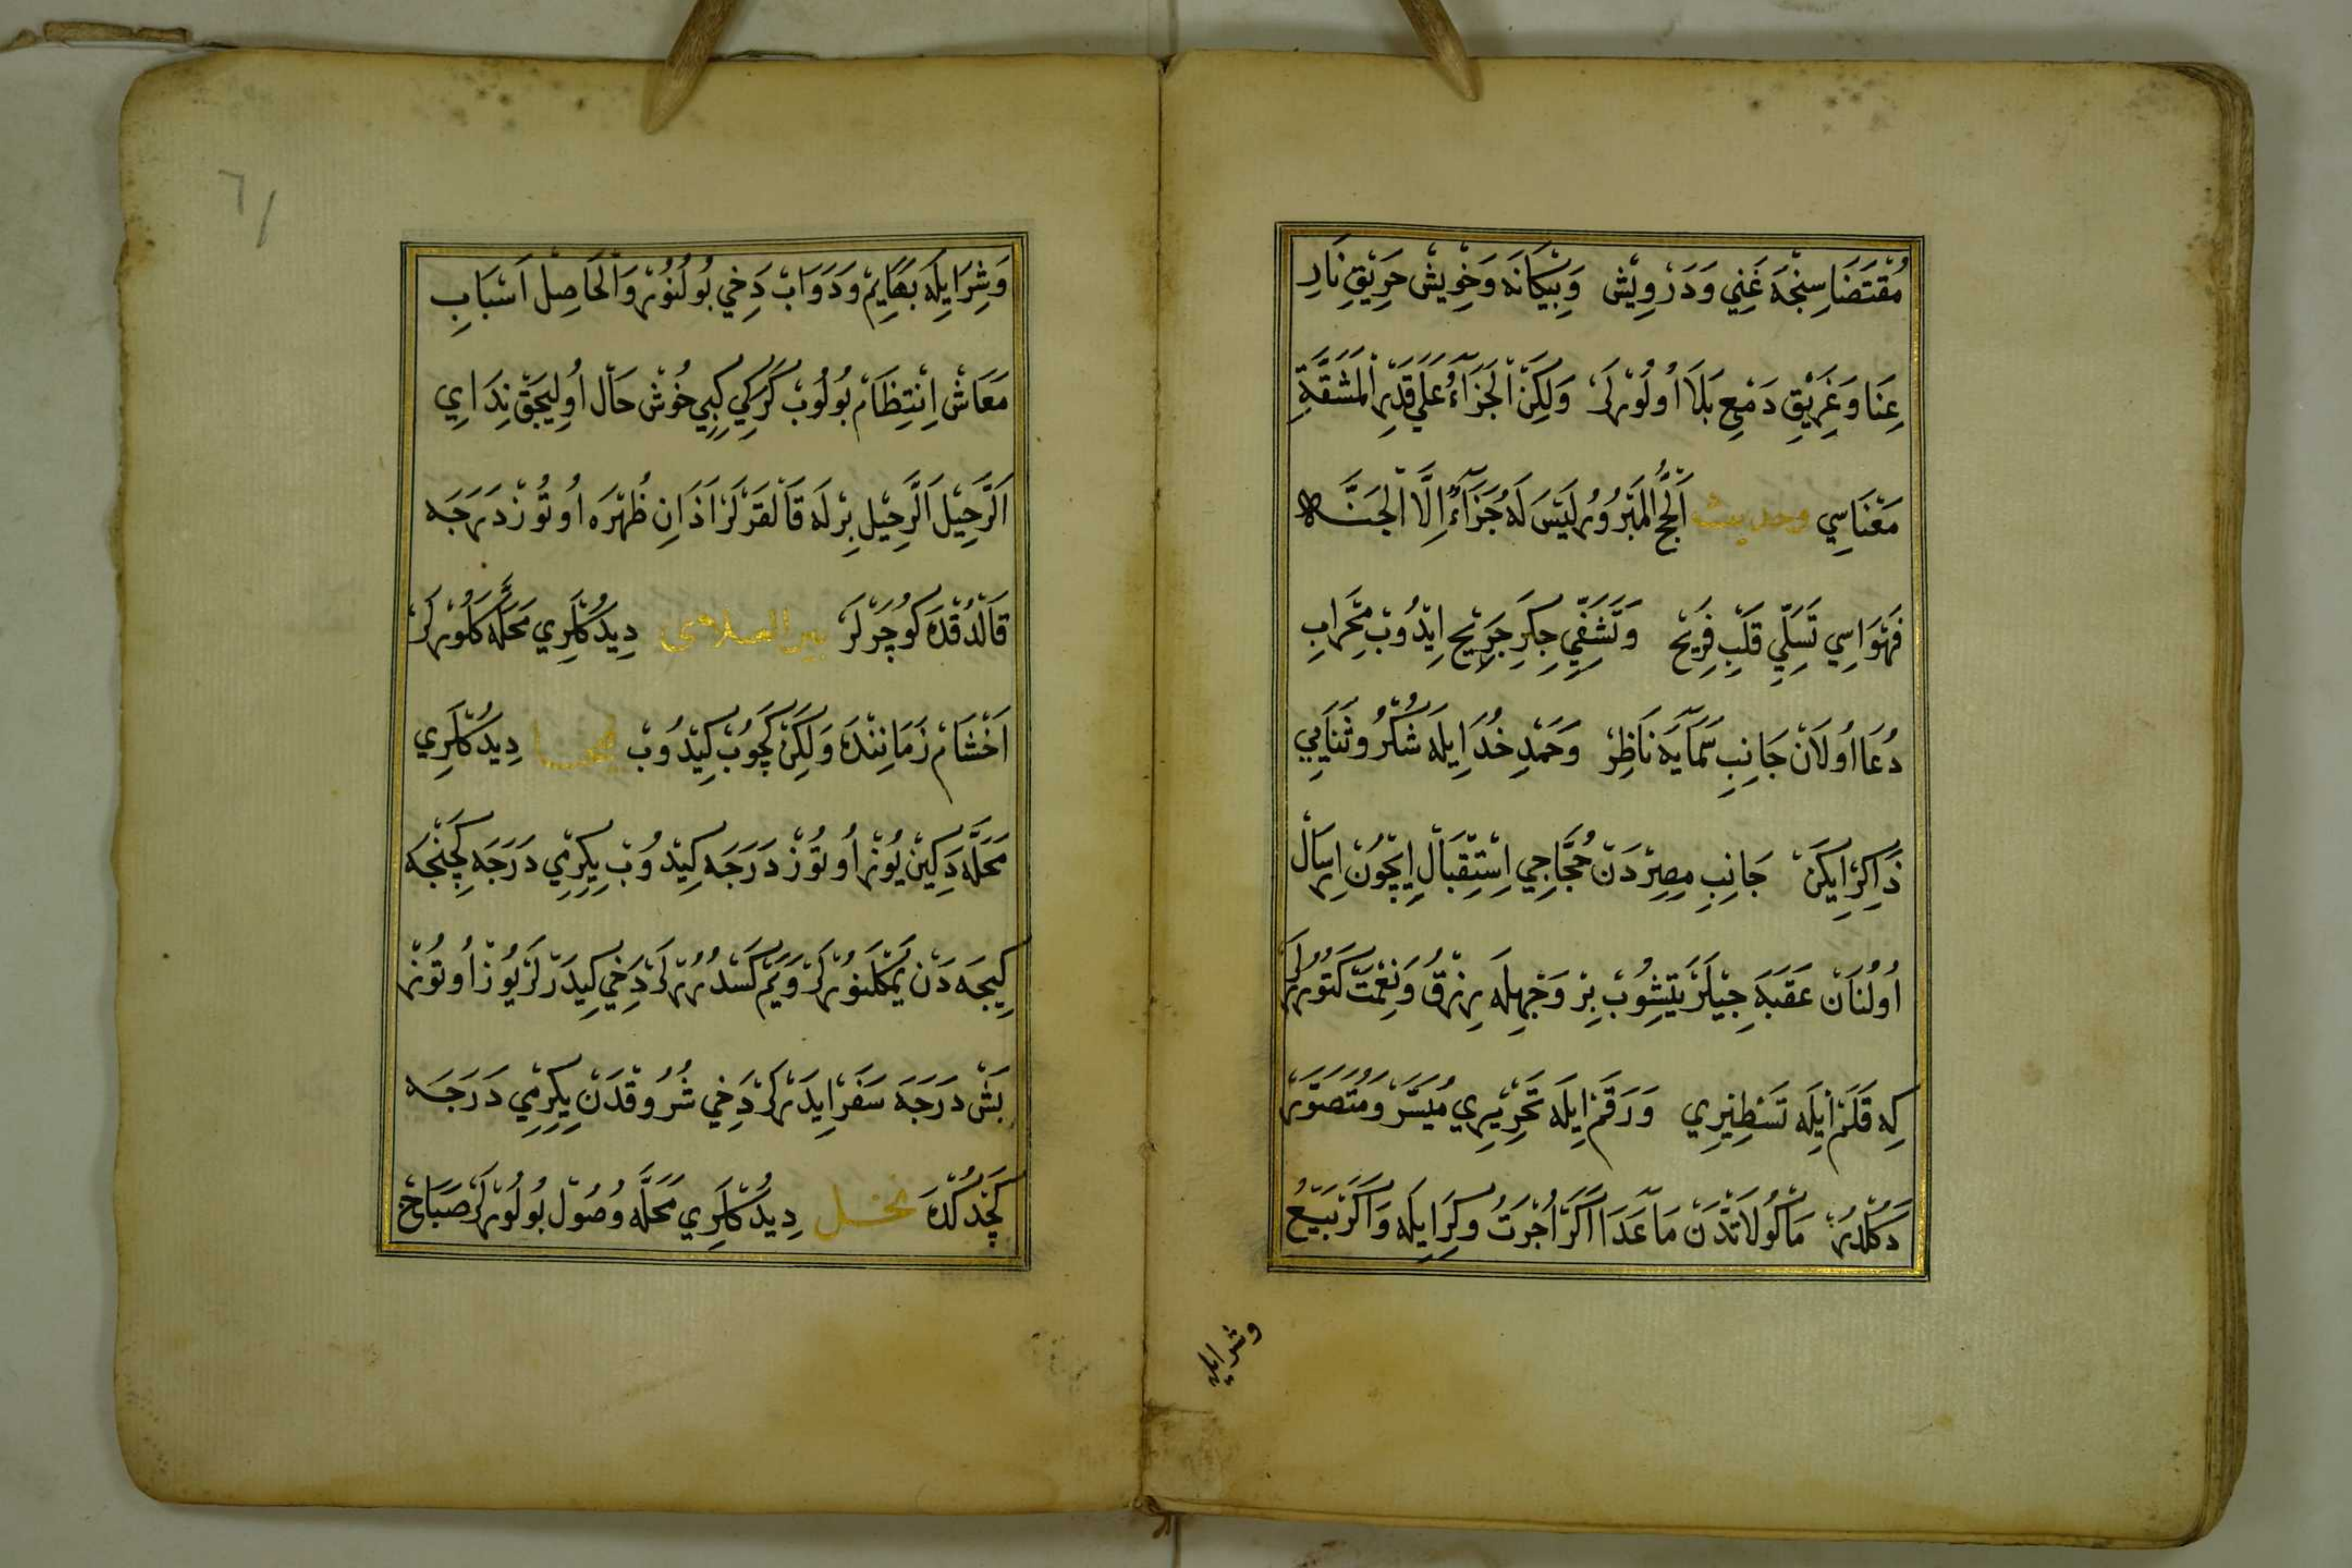 مُقْتَضَاسِنْجَه غَنِي وَدَرْوِيْش وَبِيْكَانَه وَخِْويشْ حَرِيْقِ نَارِ
عِنَا وَغَرِيْقِ دَمْعِ بَلَا اُولُوْرلَرْ وَلٰكِنْ اَلْجَزَآءُ عَلَي قَدْرِ الْمَشَقَّةِ
مَعْنَاسِي وحديث اَلْحَجُّ الْمَبْرُوْرُ لَيْسَ لَهُ جَزَآءٌ اِلَّا الْجَنَّه
فَحْوَاسِي تَسَلِّيِ قَلْبِ قَرِيْحْ وَتَشَفِّيِ جِكَرِ جَرِيْح اِيْدُوْبْ مِحْرَابِ
دُعَا اُولَانْ جَانِبِ سَمَآيَه نَاظِرْ وَحَمْدِ خُدَا اِيلَه شُكْرُ وثَنَايِي
ذَاكِرْ ايكَنْ جَانِبِ مِصِرْدَنْ حُجَّاجِي اِسْتِقْبَالْ اِيچُوْن اِرسَالْ
اُولُنَانْ عَقَبَه جِيْلَرْ يَتِشُوْبْ بِرْ وَجْهِلَه رِزْقُ وَنِعْمَتْ كَتُوْرُرلَرْ
كِه قَلَمْ اِيلَه تَسْطِيْرِي وَرَقَمْ اِيلَه تَحْرِيْرِي مُيَسَّرْ وَمُتَصَوَّرْ
دَكُلْدُرْ مَاْكُولَاتْدَنْ مَا عَدَا اَكَرْ اُجْرَتُ وكِرَا ايلَه وَاَكَرْ بَيْعُ
وشرا ايله
٦١
وَشِرَا اِيلَه بَهَايِمْ وَدَوَابْ دَخِي بُولُنُوْر وَالْحَاصِلْ اَسْبَابِ
مَعَاشْ اِنْتِظَامْ بُولُوبْ كَرَكِي كِبِي خُوشْ حَالْ اُولِيجَقْ نِدَاي
اَلرَّحِيْل اَلرَّحِيْل بِرْلَه قَالْقَرْلَرْ اَذَانِ ظُهْرَه اُوتُوْزْ دَرَجَه
قَالْدُقْدَه كُوچَرْلَرْ بير العلايى دِيدُكْلَرِي مَحَلَّه كَلُوْرلَرْ
اَخْشَامْ زَمَانِنْدَه وَلٰكِنْ كَچُوْبْ كِيْدُوبْ دِيدُكْلَرِي
مَحَلَّه دَكِيْن يُوْز اُوتُوْزْ دَرَجَه كِيْدُوبْ يِكِرْمِي دَرَجَه كِچِنْجَه
كِيجَه دَنْ يَمَكْلَنُوْرلَرْ وَيَمْ كَسْدُرُرلَرْ دَخِي كِيدَرْلَرْ يُوزْ اُوتُوْز
بَشْ دَرَجَه سَفَرْ ايدَرلَرْ دَخِي شُرُوقْدَنْ يِكِرْمِي دَرَجَه
كَچْدُكْدَه نخل دِيدُكْلَرِي مَحَلَّه وُصُولْ بُولُوْرلَرْ صَبَاحْ